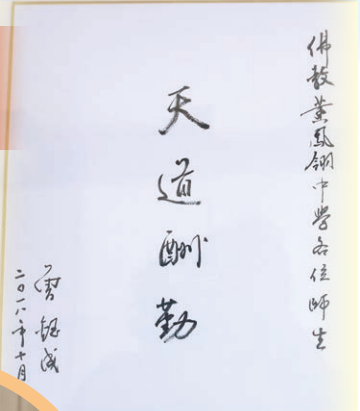 佛教葉鳳翎中學各位師生
天道酬勤
曾鈺成
二〇一八年十月